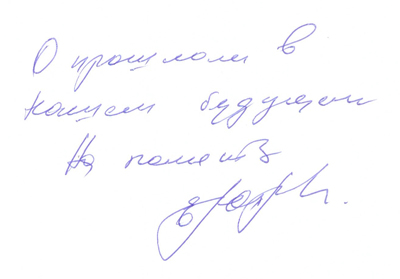 О прошлом в
нашем будущем
На память